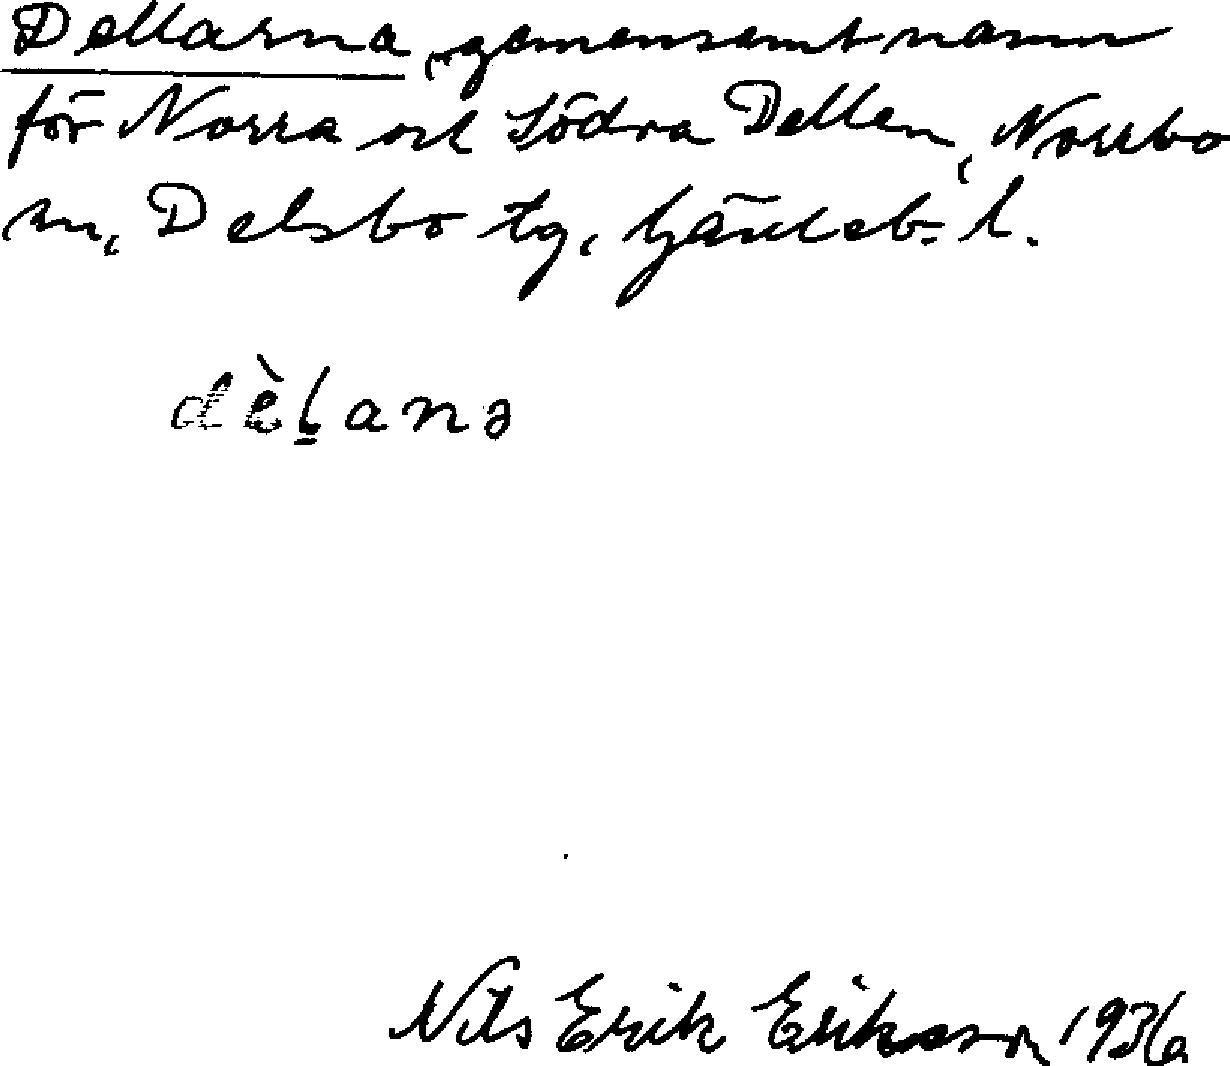 Dellarna, gemensamt namn
för Norra och Södra Dellen, Norrbo
sn, Delsbo tg, Gävleb. l.
dèḷanə
Nils Erik Eriksson 1936